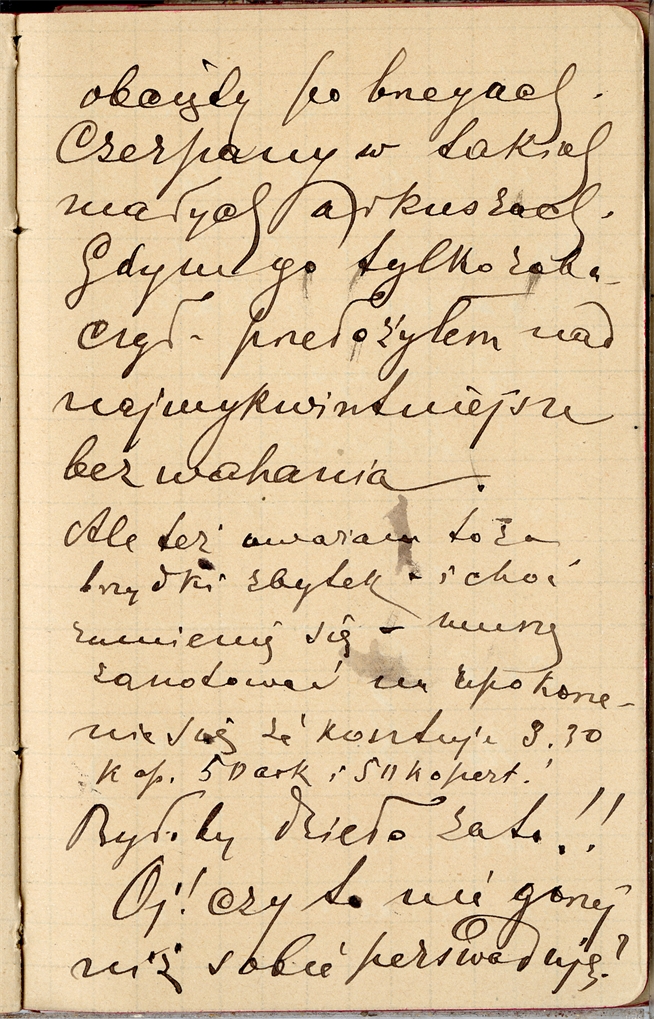 po bregach.
Czerpany w takich
małych arkuszach.
Gdym go tylko zoba-
czył - przedłożyłem nad
najwykwintniejsze
bez wahania.
Ale też uważam to za
brzydki zbytek - i choć
rumienię się - muszę
zanotować na upokorze-
nie się że kosztuje 3.30
kop. 50 ark i 50 kopert!
Byłoby dzieło za to!!
Oj! czy to nie gorzej
niż sobie perswaduję?